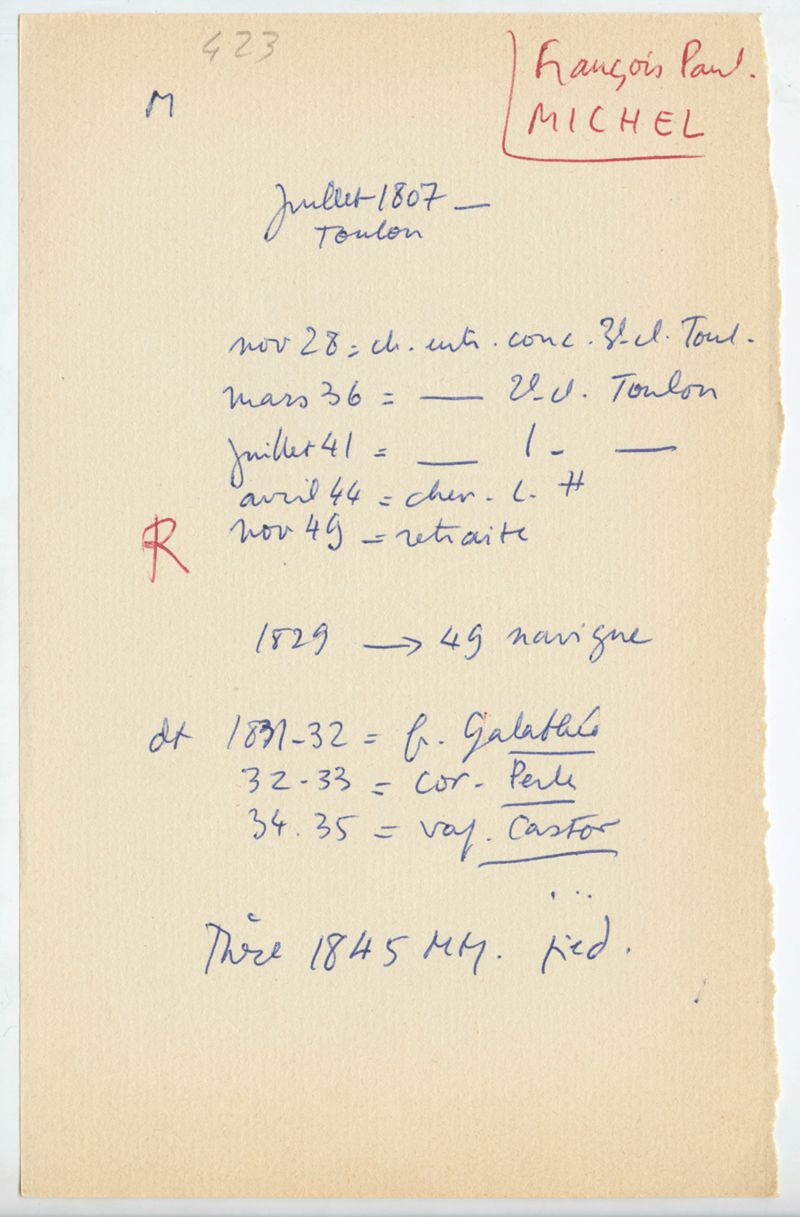 423
François Paul.
MICHEL
M
Juillet 1807 —
Toulon
nov 28 = ch. entr. conc. 3e cl. Toul.
mars 36 = —— 2e cl. Toulon
juillet 41 = —— 1 - ——
avril 44 = chev. L. H
R nov 49 = retraite
1829 → 49 navigue
dt 1831-32 = fr. Galathée
32-33 = cor. Perle
34.35 = vap. Castor
...
Thèse 1845 MM. pied.